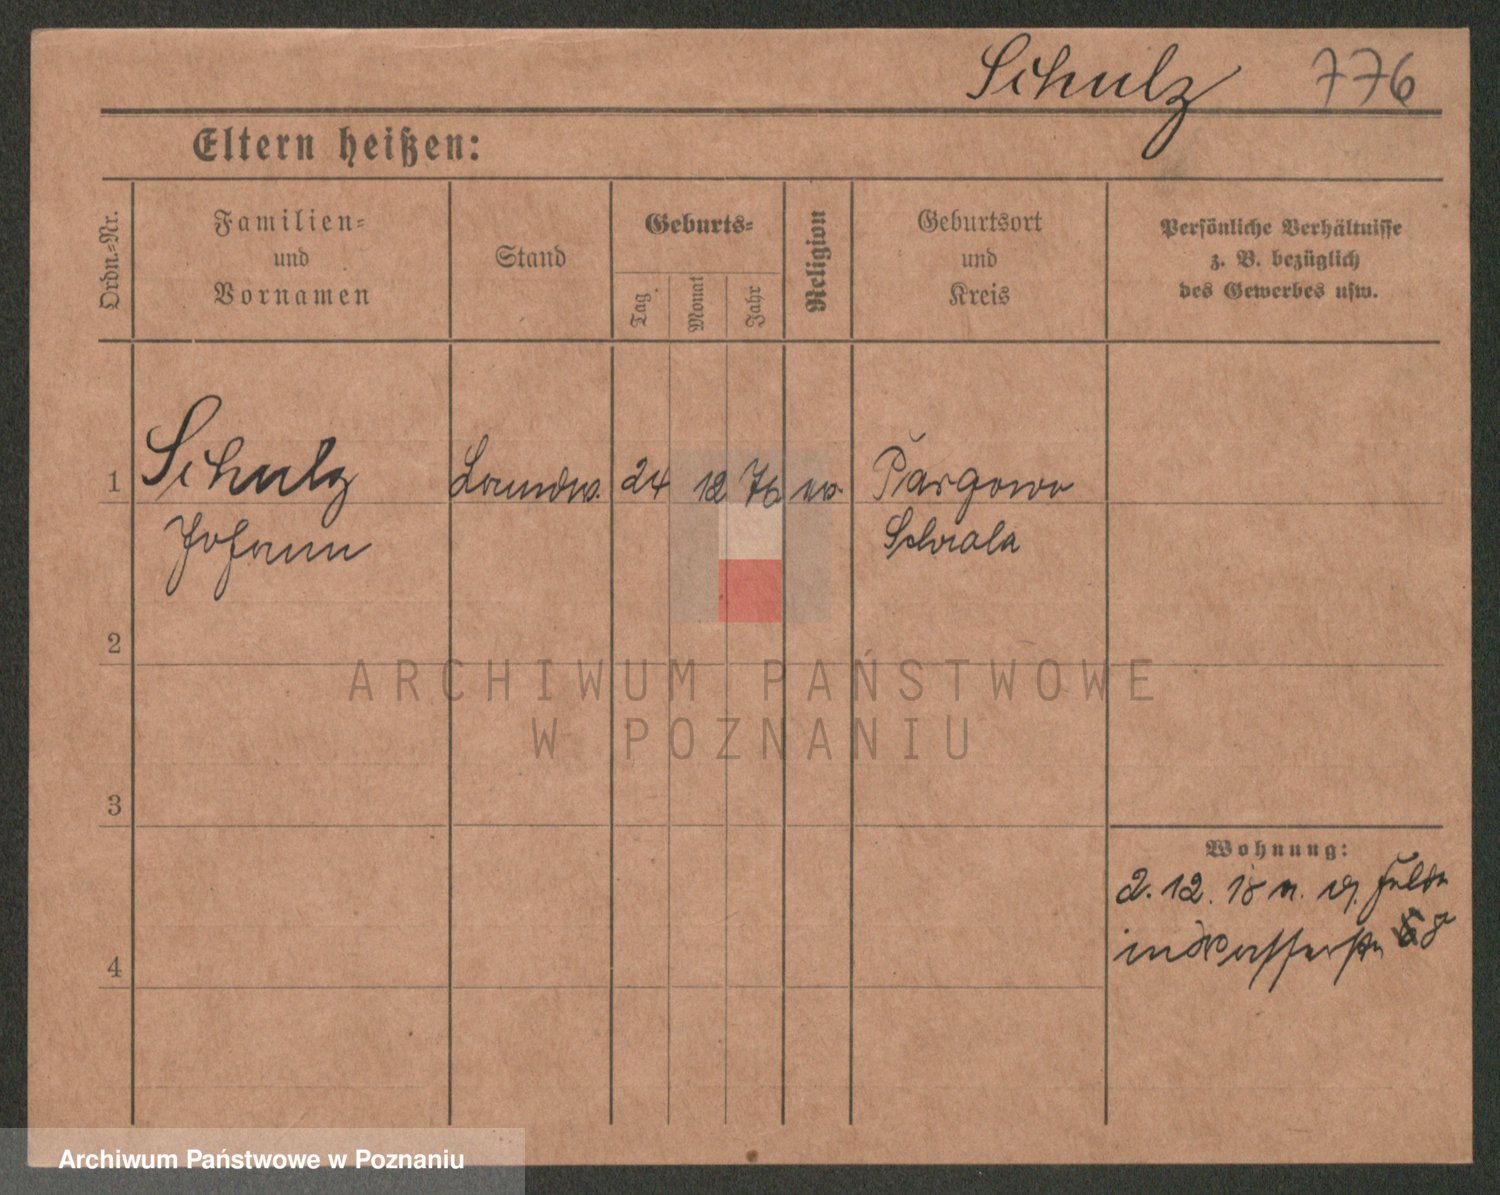 Schulz 776
Eltern heißen:
Ordn.-Nr.
Familien-
und
Vornamen
Stand
Geburts-
Tag
Monat
Jahr
Religion
Geburtsort
und
Kreis
Persönliche Verhältnisse
z. B. bezüglich
des Gewerbes usw.
1
Schulz
Johann
Landw.
24
12
76
ev.
Pargowo
2
3
4
Wohnung:
2. 12. 18 n.
8
ARCHIWUM PAŃSTWOWE
W POZNANIU
Archiwum Państwowe w Poznaniu